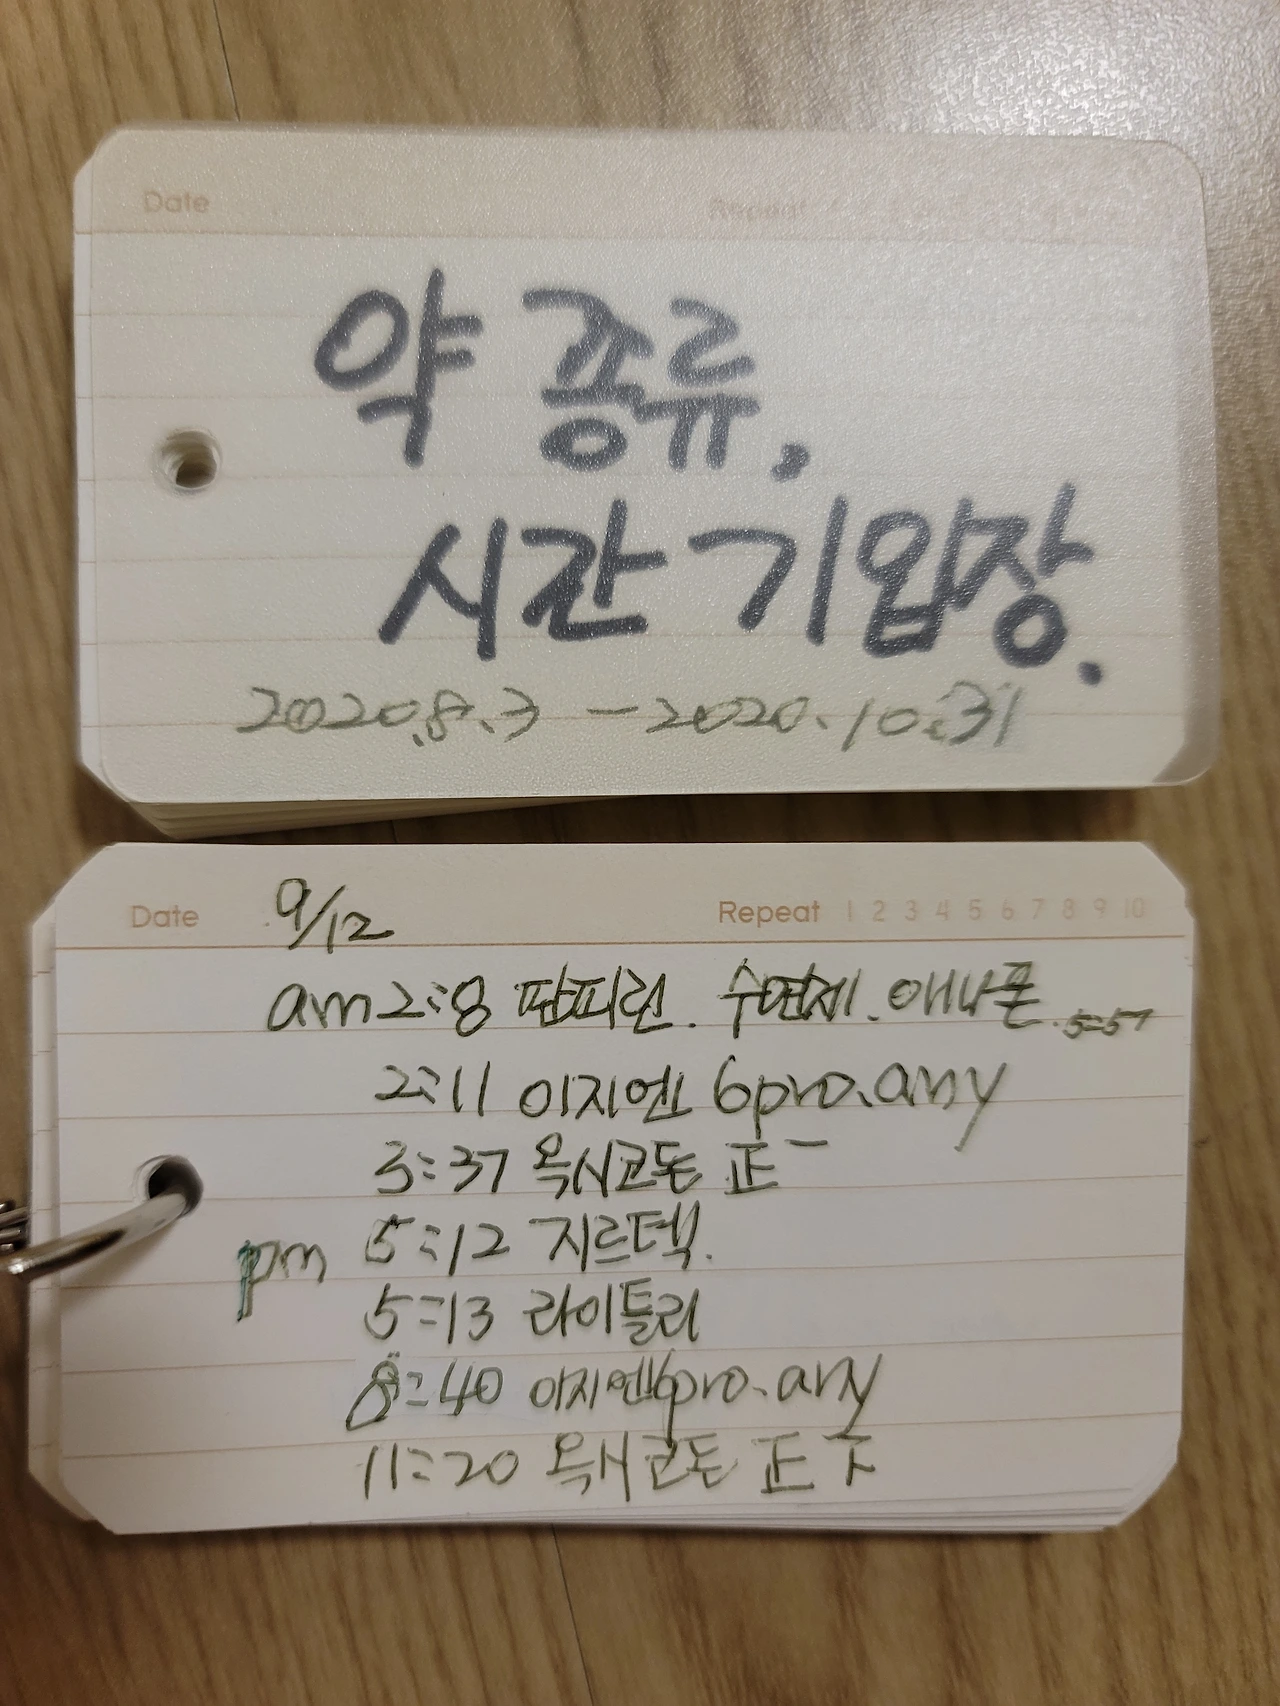 Date Repeat
약 종류,
시간 기입장.
2020.8.3 - 2020.10.31
Date 9/12 Repeat 1 2 3 4 5 6 7 8 9 10
am 2:8 판피린. 수면제. 애나폰. 5:57
2:11 이지엔 6pro.any
3:37 옥시코돈 正一
pm 5:12 지르텍.
5:13 라이틀리
8:40 이지엔6pro.any
11:20 옥시코돈 正下